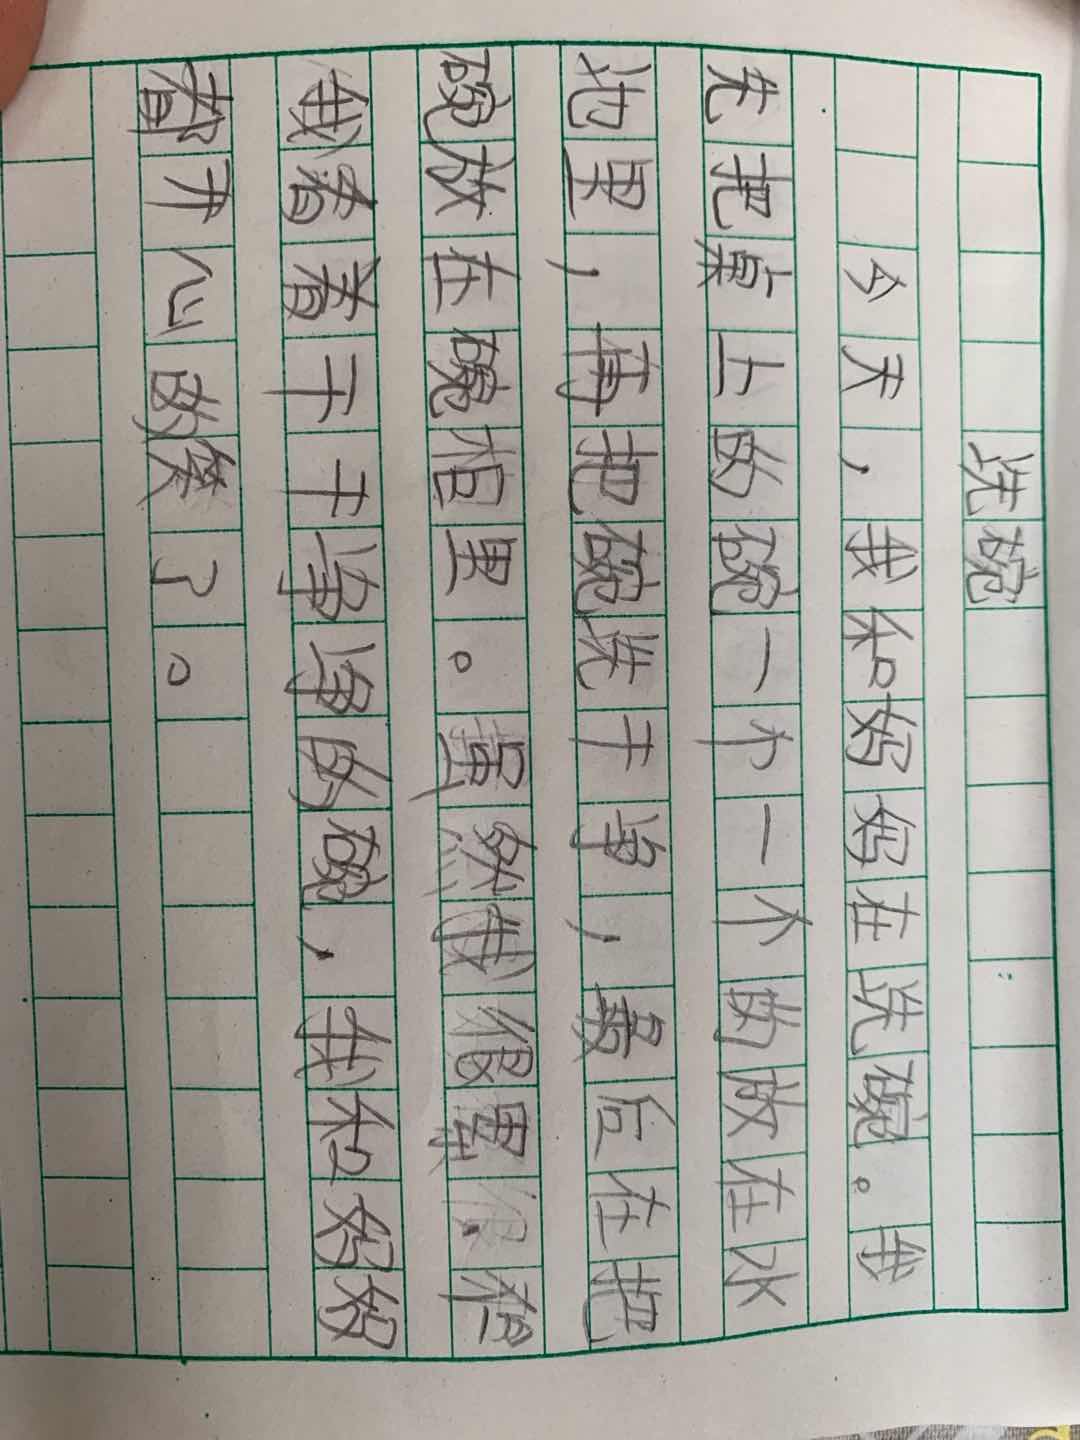 洗碗
今天，我和妈妈在洗碗。我
先把桌上的碗一个一个的放在水
池里，再把碗洗干净，最后在把
碗放在碗柜里。虽然我很累，但
我看着干干净净的碗，我和妈妈
都开心的笑了。